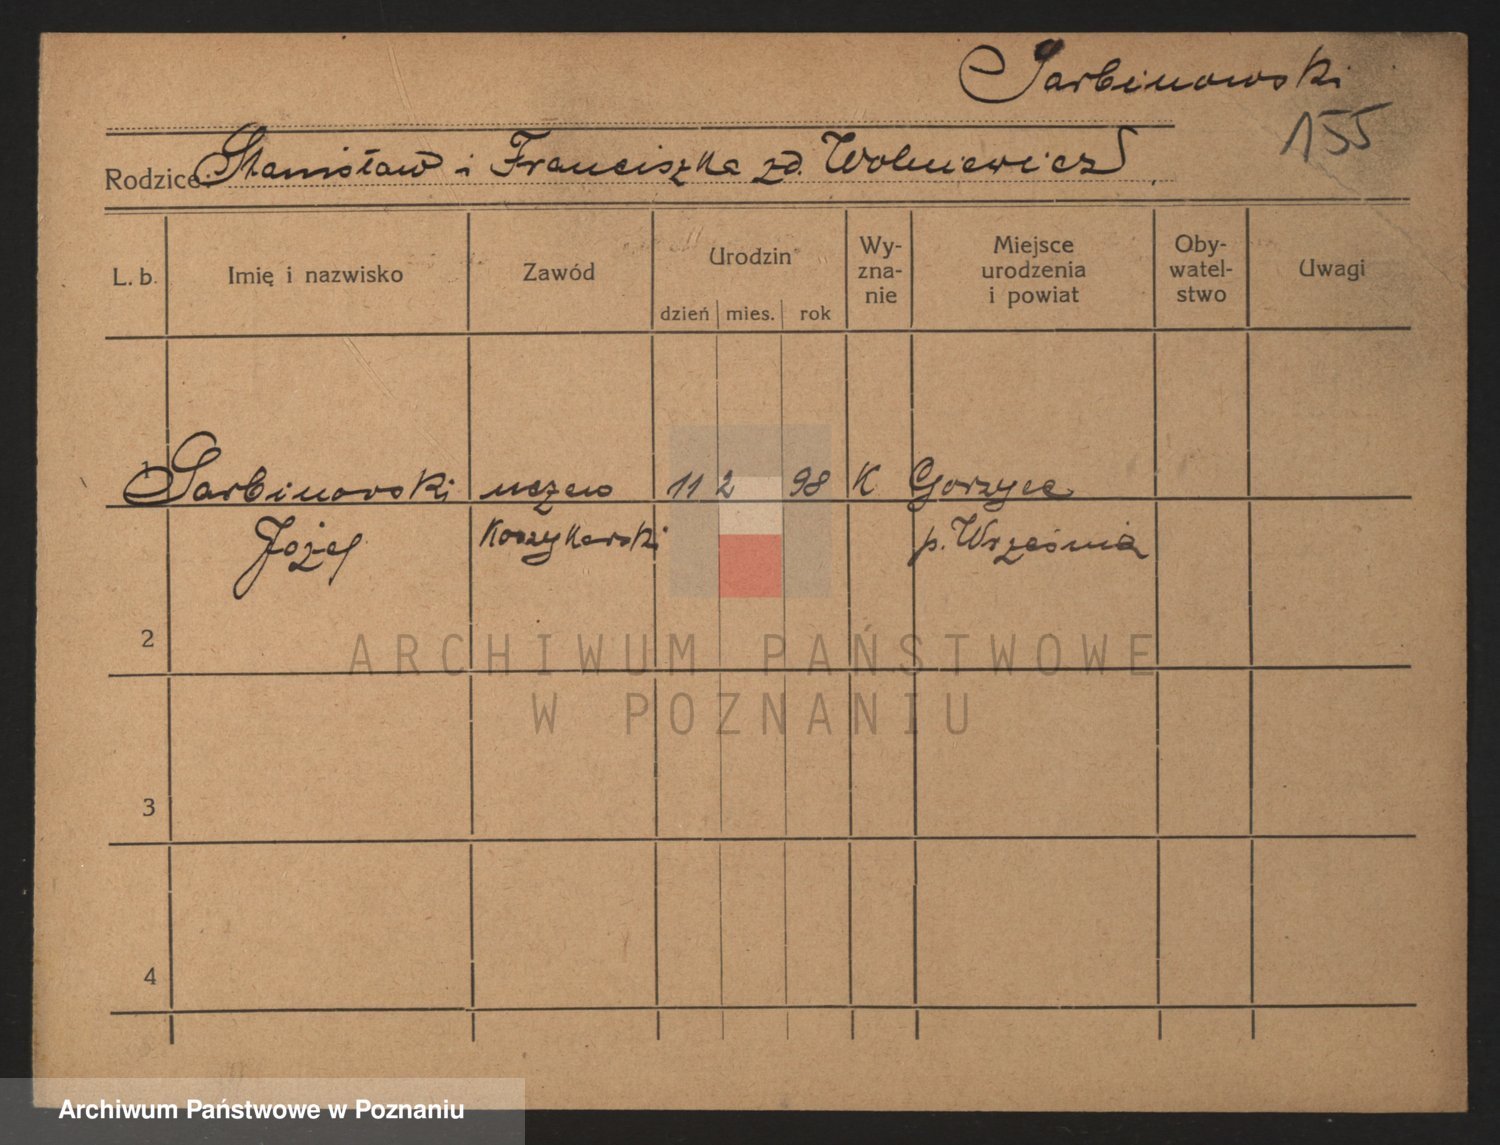 Sarbinowski
155
Rodzice: Stanisław i Franciszka zd. Wolniewicz
L. b. Imię i nazwisko Zawód Urodzin Wy-zna-nie Miejsce urodzenia i powiat Oby-watel-stwo Uwagi
dzień mies. rok
1 Sarbinowski uczeń 11 2 98 K Gorzyce
Józef Koszykarski p. Września
2
ARCHIWUM PAŃSTWOWE
W POZNANIU
3
4
Archiwum Państwowe w Poznaniu